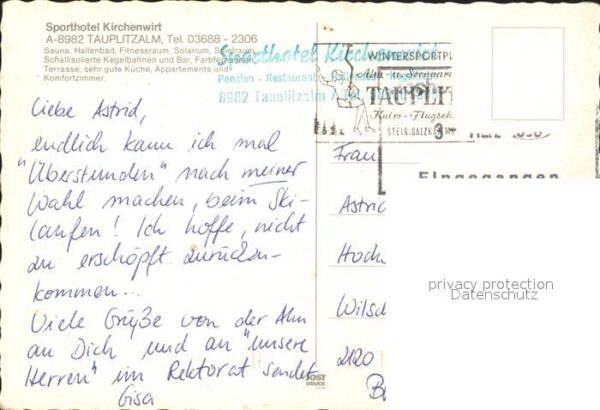 Sporthotel Kirchenwirt
A-8982 TAUPLITZALM, Tel. 03688 - 2306
Sauna, Hallenbad, Fitnessraum, Solarium, Spielraum,
Schallisolierte Kegelbahnen und Bar,
Terrasse, sehr gute Küche, Appartements und
Komfortzimmer.
Sporthotel Kirchenwirt
Pension - Restaurant
8982 Tauplitzalm
WINTERSPORTPL
TAUPLI
Kulm-Flugsch
STEIR. SALZKAMM
Liebe Astrid,
endlich kann ich mal
"Überstunden" nach meiner
Wahl machen, beim Ski-
laufen! Ich hoffe, nicht
zu erschöpft zurückzu-
kommen...
Viele Grüße von der Alm
an Dich und an "unsere
Herren" im Rektorat sendet
Gisa
Frau
Astri
Hoch
Wilsc
2120
Eingegangen
JOST
DRUCK
privacy protection
Datenschutz